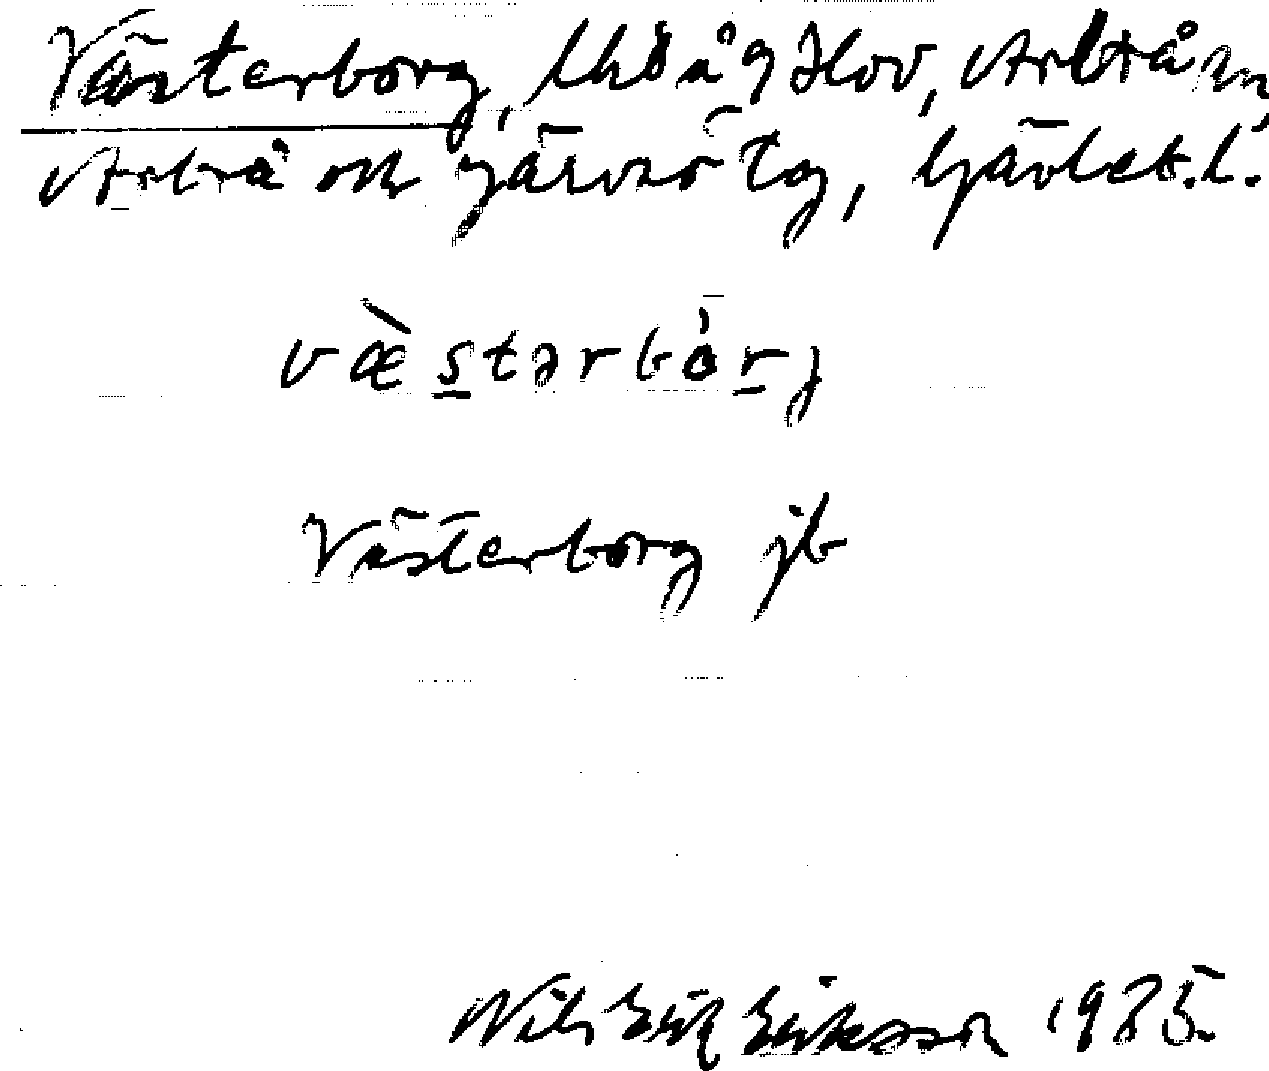 Västerborg, Hov, Arbrå sn,
Arbrå och Järvsö tg, Gävleb. l.
væ̀stərbórj
Västerborg jb
Nils Erik Eriksson 1935